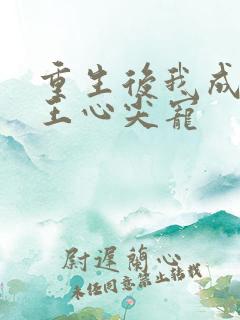 重生後我成
王心尖寵
尉遲蘭心
未经同意禁止转载